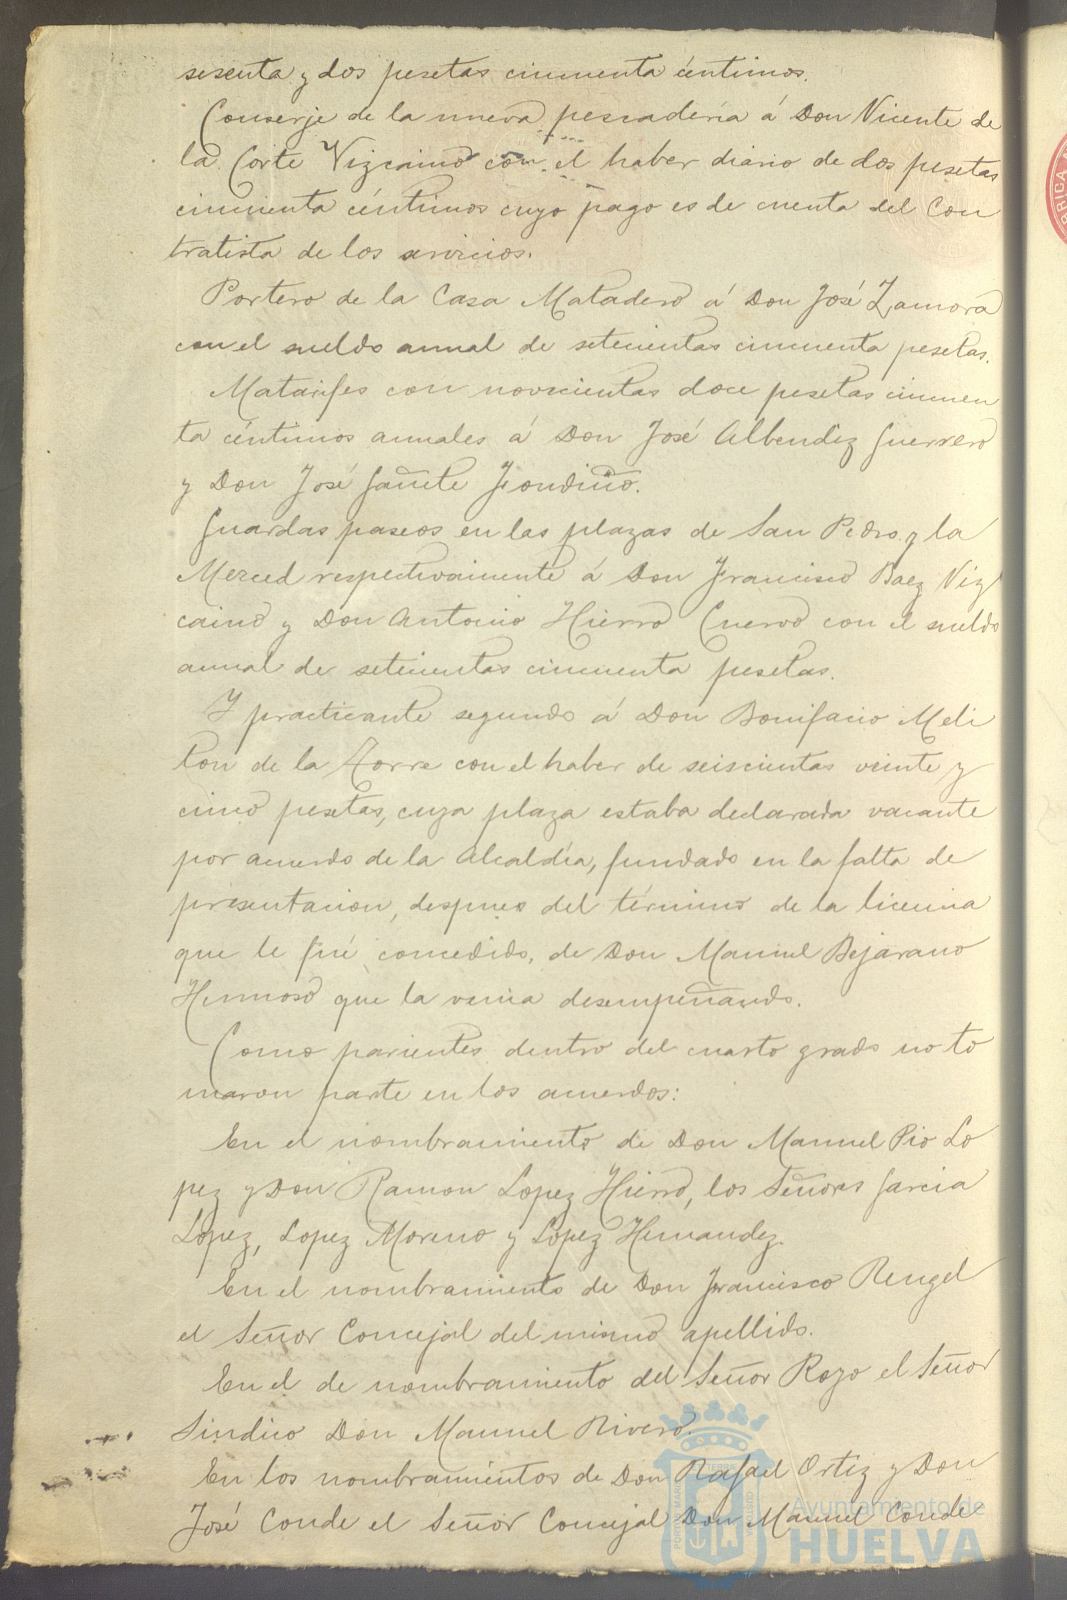 sesenta y dos pesetas cincuenta céntimos.
Conserje de la nueva pescadería á Don Vicente de
la Corte Vizcaino con el haber diario de dos pesetas
cincuenta céntimos cuyo pago es de cuenta del Con
tratista de los servicios.
Portero de la Casa Matadero á Don José Zamora
con el sueldo annal de setecientas cincuenta pesetas.
Matarifes con novecientas doce pesetas cincuen
ta céntimos annales á Don José Albendiz Guerrero
y Don José Gañete Fondiño.
Guardas paseos en las plazas de San Pedro y la
Merced respectivamente á Don Francisco Baez Viz
caino y Don Antonio Hierro Cuervo con el sueldo
annal de setecientas cincuenta pesetas.
Y practicante segundo á Don Bonifacio Meli
ton de la Torre con el haber de seiscientas veinte y
cinco pesetas, cuya plaza estaba declarada vacante
por acuerdo de la Alcaldía, fundado en la falta de
presentacion, despues del término de la licencia
que le fué concedido, de Don Manuel Bejarano
Hermoso que la venia desempeñando.
Como parientes dentro del cuarto grado no to
maron parte en los acuerdos:
En el nombramiento de Don Manuel Pio Lo
pez y Don Ramon Lopez Hierro, los Señores Garcia
Lopez, Lopez Moreno y Lopez Hernandez.
En el nombramiento de Don Francisco Rengel
el Señor Concejal del mismo apellido.
En el de nombramiento del Señor Rozo el Señor
Sindico Don Manuel Rivero.
En los nombramientos de Don Rafael Ortiz y Don
José Conde el Señor Concejal Don Manuel Conde
Ayuntamiento de
HUELVA